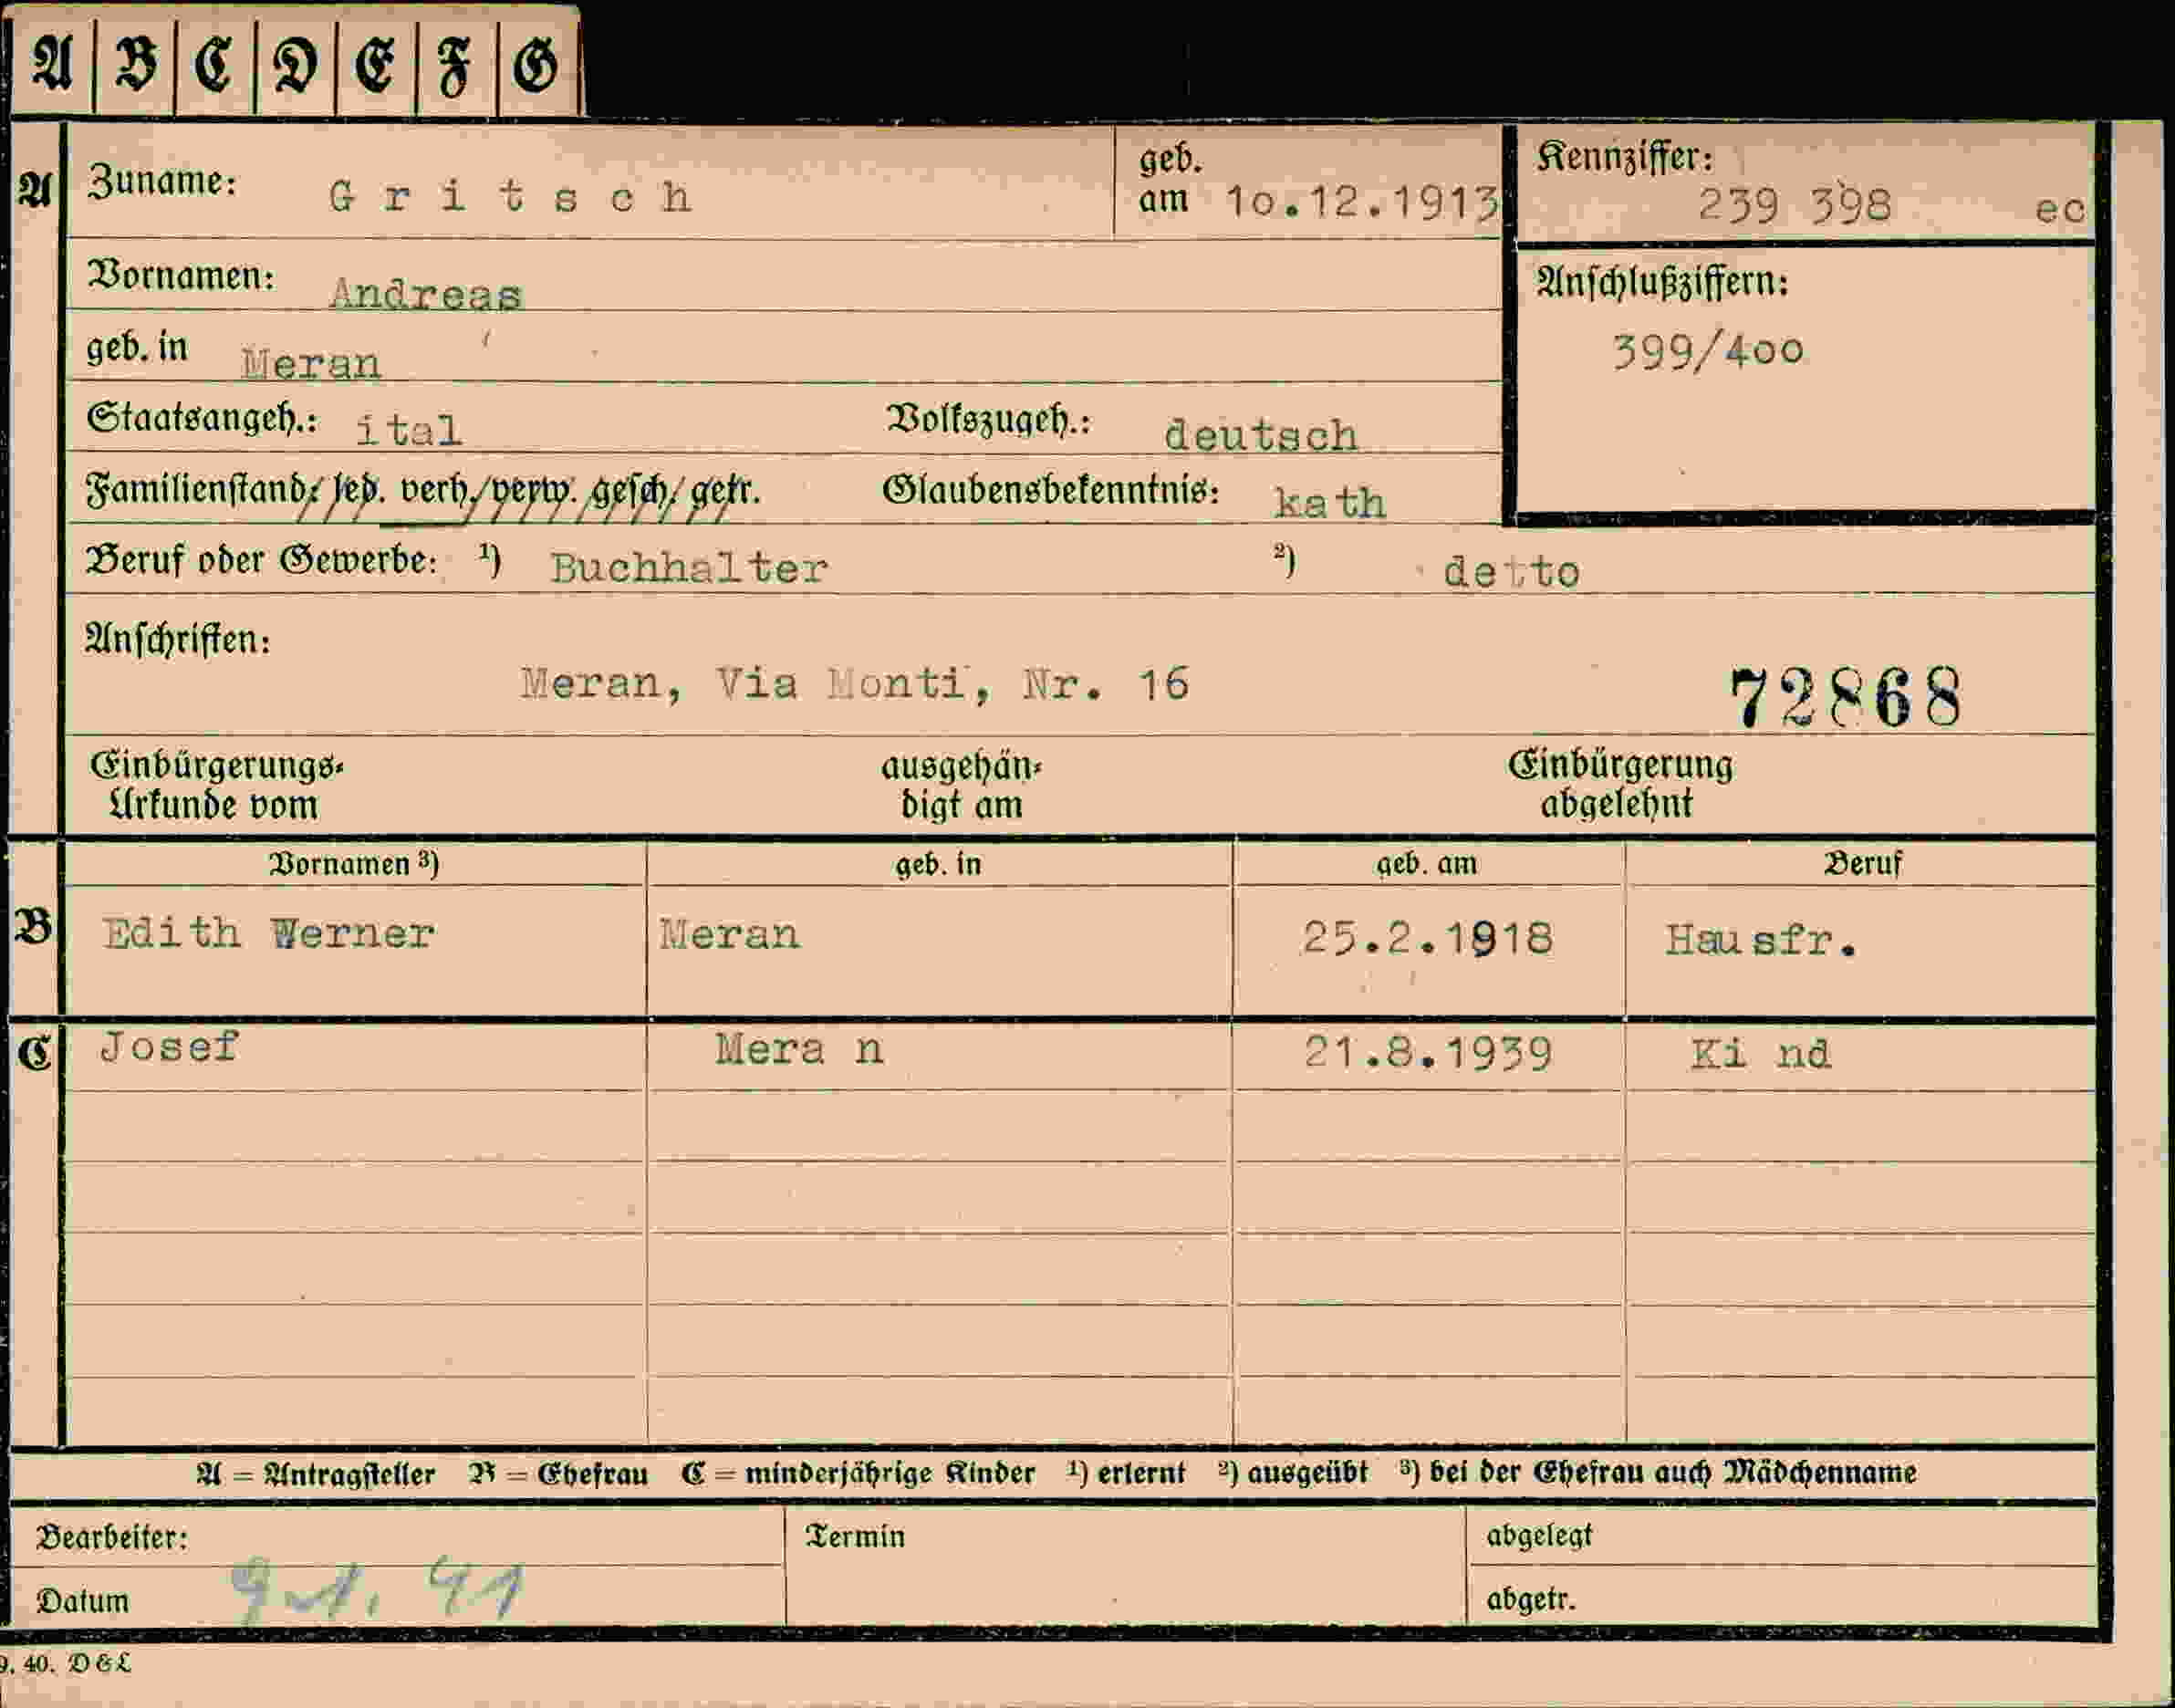 A B C D E F G
A Zuname: Gritsch geb. am 10.12.1913 Kennziffer: 239 398 ec
Vornamen: Andreas Anschlußziffern:
geb. in Meran 399/400
Staatsangeh.: ital Volkszugeh.: deutsch
Familienstand: led. verh. verw. gesch. getr. Glaubensbekenntnis: kath
Beruf oder Gewerbe: ¹) Buchhalter ²) detto
Anschriften:
Meran, Via Monti, Nr. 16 72868
Einbürgerungs- ausgehän- Einbürgerung
Urkunde vom digt am abgelehnt
Vornamen ³) geb. in geb. am Beruf
B Edith Werner Meran 25.2.1918 Hausfr.
C Josef Mera n 21.8.1939 Ki nd
A = Antragsteller B = Ehefrau C = minderjährige Kinder ¹) erlernt ²) ausgeübt ³) bei der Ehefrau auch Mädchenname
Bearbeiter: Termin abgelegt
Datum 9.1. 41 abgetr.
9. 40. D & L